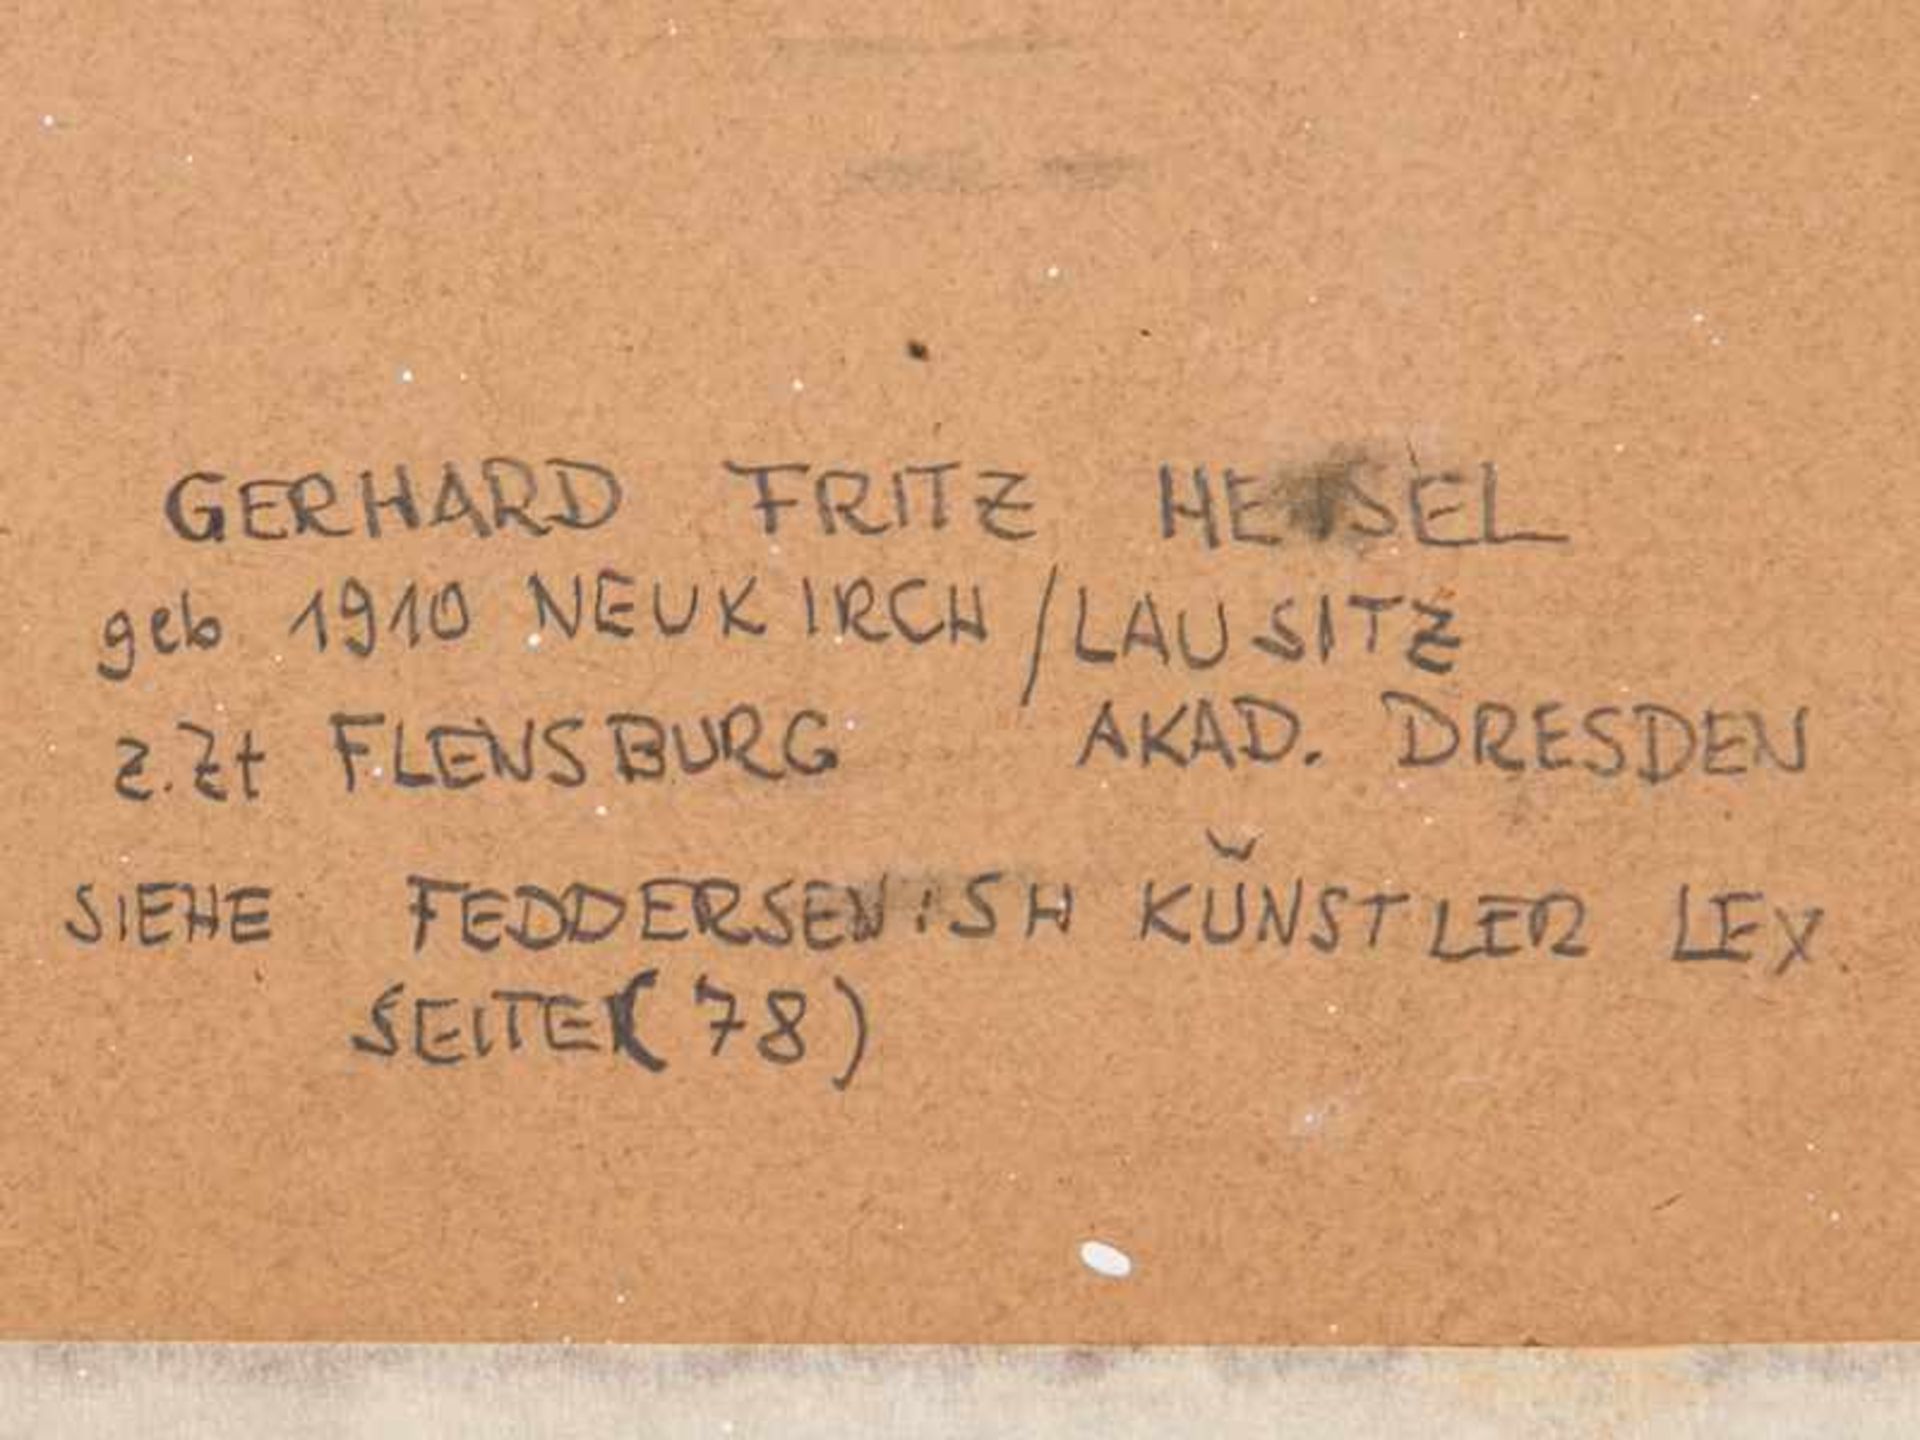 GERHARD FRITZ
geb. 1910 NEUKIRCH / LAUSITZ
z.Zt FLENSBURG AKAD. DRESDEN
SIEHE FEDDERSEN:SH KÜNSTLER LEX
SEITE (78)